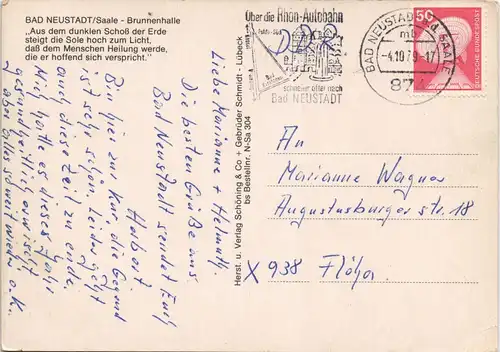 BAD NEUSTADT/Saale - Brunnenhalle
„Aus dem dunklen Schoß der Erde
steigt die Sole hoch zum Licht,
daß dem Menschen Heilung werde,
die er hoffend sich verspricht."
Liebe Marianne + Helmuth
Die besten Grüße aus
Bad Neustadt sendet Euch
Herbert
Bin hier zur Kur, die Gegend
ist sehr schön. Leider geht
auch diese Zeit zu ende,
Mich hatte es dieses Jahr
gesundheitlich erwischt
aber alles soweit wieder o.k.
Herst. u. Verlag Schöning & Co + Gebrüder Schmidt - Lübeck
bs Bestellnr. N-Sa 304
Über die Rhön-Autobahn
schneller nach
BAD NEUSTADT
BAD NEUSTADT a.d. SAALE
mb
-4.10.79-17
874
50
DEUTSCHE BUNDESPOST
DDR
An
Marianne Wagner
Augustusburger str. 18
X 938 Flöha